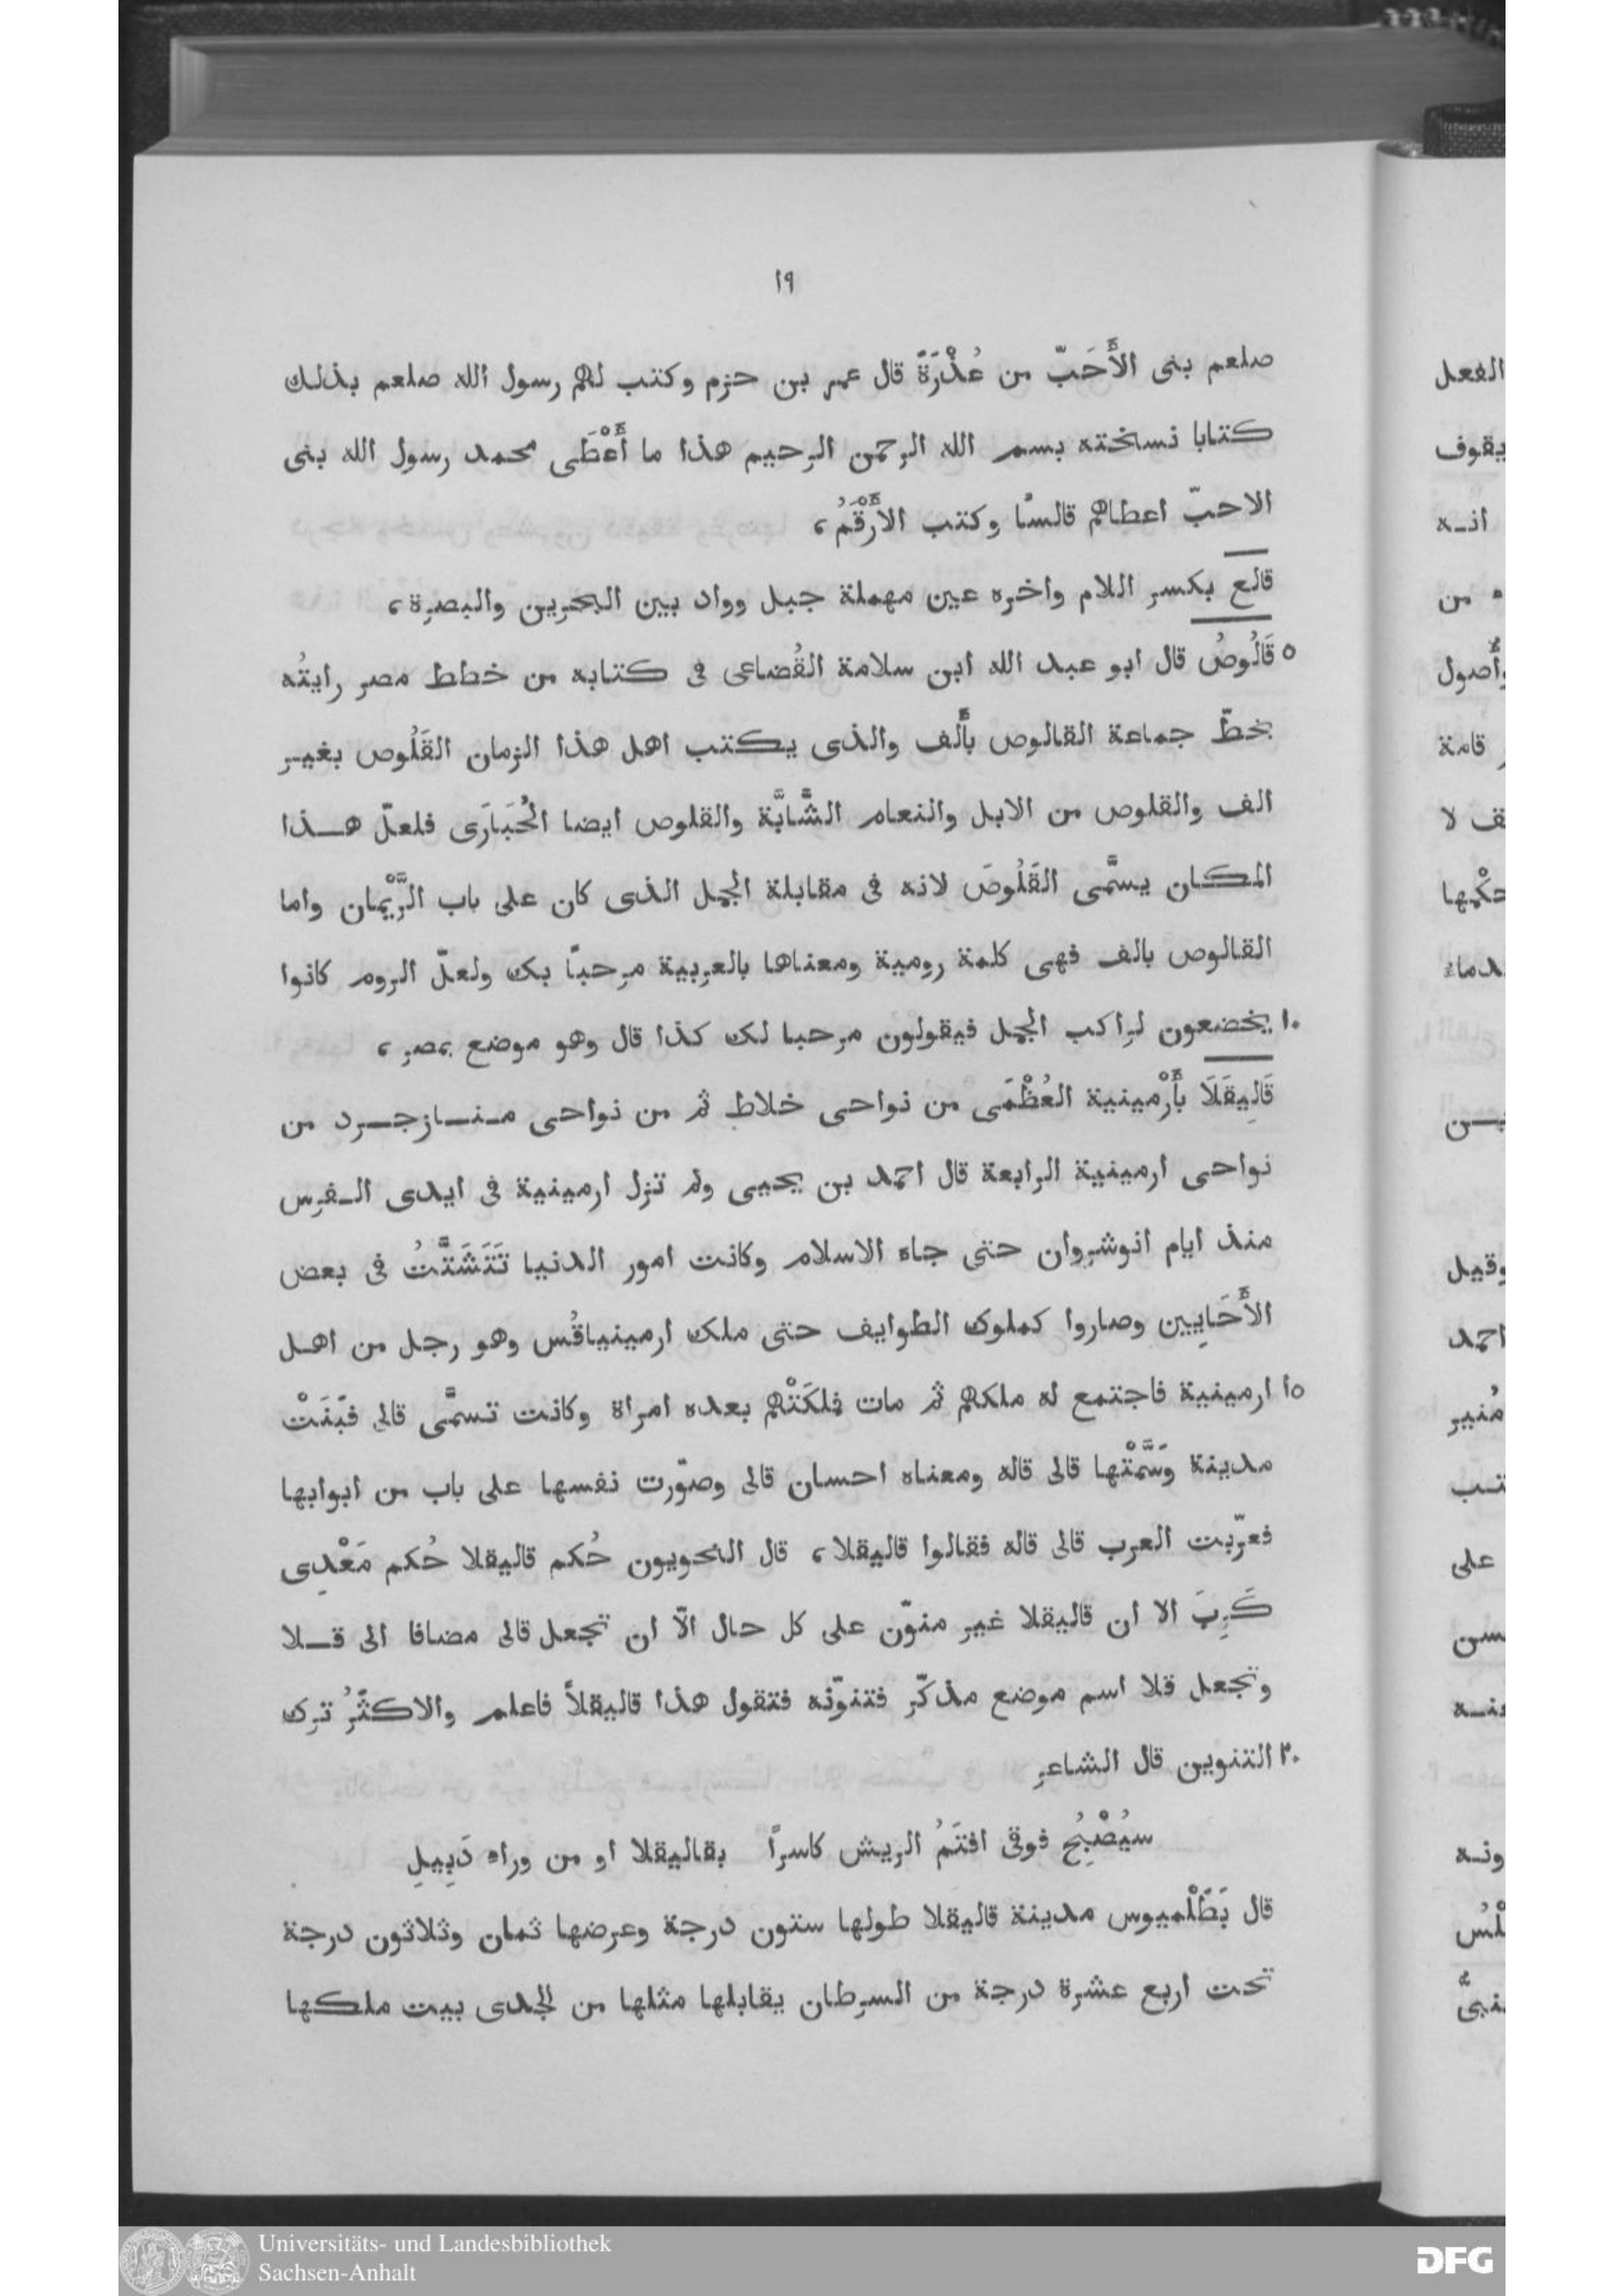 ١٩
صلعم بنى الأَحَبّ من عُذْرَةَ قال عمر بن حزم وكتب لهم رسول الله صلعم بذلك
كتابا نسخته بسم الله الرحمن الرحيم هذا ما أَعْطَى محمد رسول الله بنى
الاحبّ اعطاهم قالسًا وكتب الأَرْقَمُ،
قالع بكسر اللام واخره عين مهملة جبل وواد بين البحرين والبصرة،
٥ قَالُوصُ قال ابو عبد الله ابن سلامة القُضاعى فى كتابه من خطط مصر رايتُه
بخطّ جماعة القالوص بأَلف والذى يكتب اهل هذا الزمان القَلُوص بغير
الف والقلوص من الابل والنعام الشَّابَّة والقلوص ايضا الحُبَارَى فلعلّ هذا
المكان يسمَّى القَلُوصَ لانه فى مقابلة الجمل الذى كان على باب الرَّيْمان واما
القالوص بالف فهى كلمة رومية ومعناها بالعربية مرحبًا بك ولعلّ الروم كانوا
١٠ يخضعون لراكب الجمل فيقولون مرحبا لك كذا قال وهو موضع بمصر،
قَالِيقَلَا بأَرْمينية العُظْمَى من نواحى خلاط ثم من نواحى منازجرد من
نواحى ارمينية الرابعة قال احمد بن يحيى ولم تزل ارمينية فى ايدى الفرس
منذ ايام انوشروان حتى جاه الاسلام وكانت امور الدنيا تَتَشَتَّتُ فى بعض
الأَحَايِين وصاروا كملوك الطوايف حتى ملك ارمينياقُس وهو رجل من اهل
١٥ ارمينية فاجتمع له ملكهم ثم مات فملكَتْهم بعده امراة وكانت تسمَّى قالى فبَنَتْ
مدينة وَسَمَّتْها قالى قاله ومعناه احسان قالى وصوّرت نفسها على باب من ابوابها
فعرّبت العرب قالى قاله فقالوا قاليقلا، قال النحويون حُكم قاليقلا حُكم مَعْدِى
كَرِبَ الا ان قاليقلا غير منوّن على كل حال الّا ان تجعل قالى مضافا الى قلا
وتجعل قلا اسم موضع مذكّر فتنوّنه فتقول هذا قاليقلاً فاعلم والاكثَرُ ترك
٢٠ التنوين قال الشاعر
سيُصْبِحُ فوقى اقتَمُ الريش كاسرًا بقاليقلا او من وراء دَبِيلِ
قال بَطَلْميوس مدينة قاليقلا طولها ستون درجة وعرضها ثمان وثلاثون درجة
تحت اربع عشرة درجة من السرطان يقابلها مثلها من الجدى بيت ملكها
الفعل
يقوف
انه
من
وأُصول
قامة
لا
حكْمها
وقيل
احمد
مُنير
على
Universitäts- und Landesbibliothek
Sachsen-Anhalt
DFG